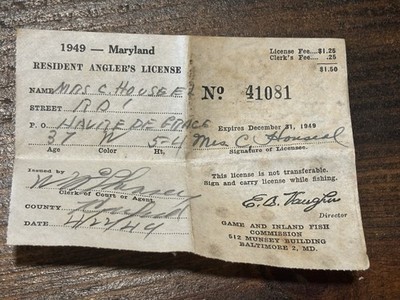 1949 — Maryland
RESIDENT ANGLER'S LICENSE
NAME MRS C. HOUSEEL
STREET RD 1
P. O. HAVRE DE GRACE
3 W 5-4
Age Color Ht.
Issued by
Clerk of Court or Agent.
COUNTY
DATE 4/22/49
License Fee....$1.25
Clerk's Fee.... .25
$1.50
No 41081
Expires December 31, 1949
Mrs C. Houseal
Signature of Licensee.
This license is not transferable.
Sign and carry license while fishing.
E. B. Vaughn
Director
GAME AND INLAND FISH
COMMISSION
512 MUNSEY BUILDING
BALTIMORE 2, MD.